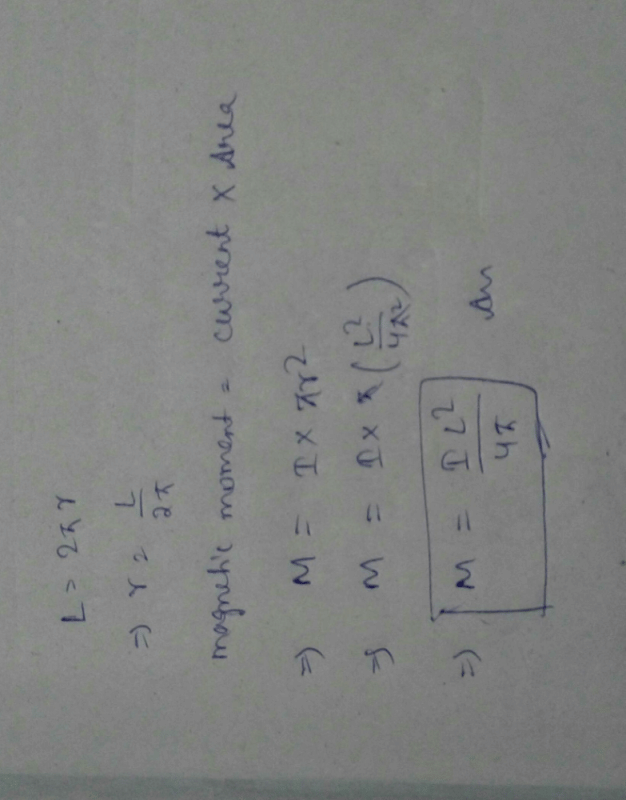 L = 2πr
⇒ r = L/2π
magnetic moment = current × Area
⇒ M = I × πr²
⇒ M = I × π (L²/4π²)
⇒ M = I L²/4π An